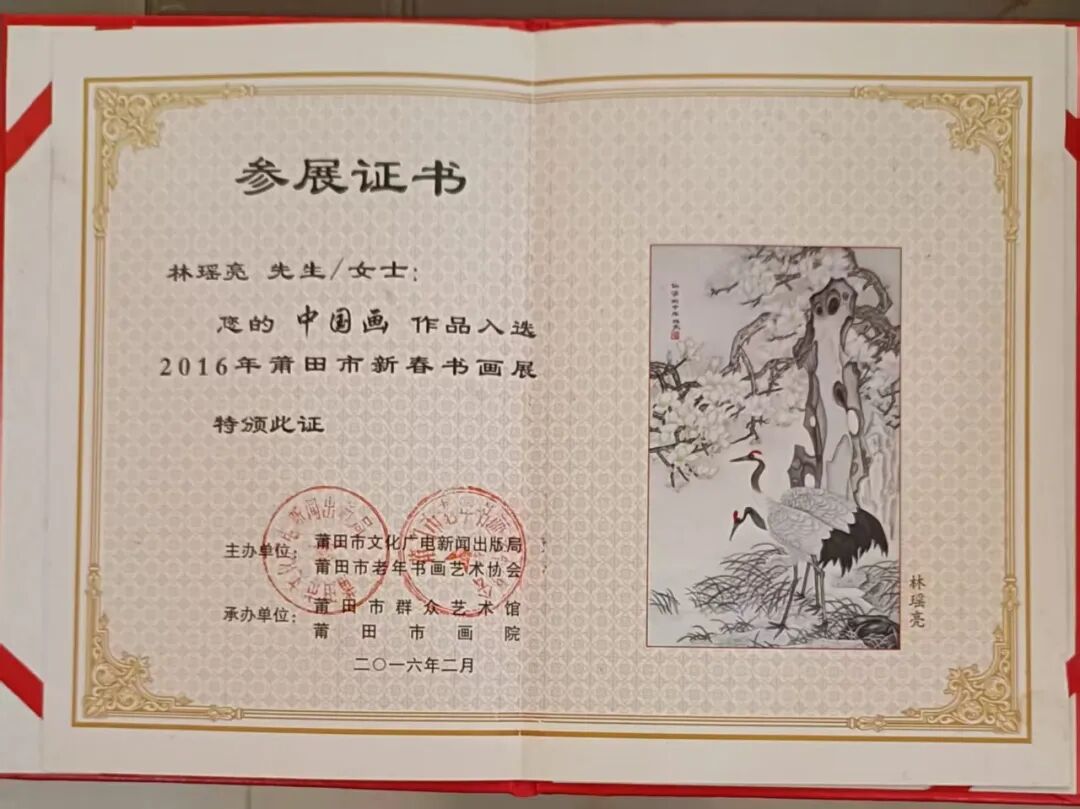 参展证书
林瑶亮 先生/女士：
您的 中国画 作品入选
2016年莆田市新春书画展
特颁此证
主办单位： 莆田市文化广电新闻出版局
莆田市老年书画艺术协会
承办单位： 莆田市群众艺术馆
莆田市画院
二〇一六年二月
林瑶亮